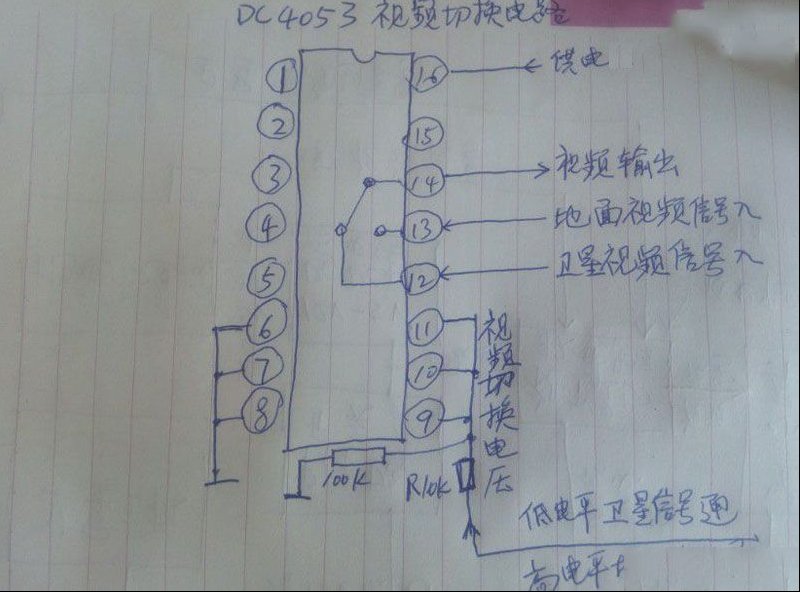 DC4053视频切换电路
1
16
供电
2
15
3
14
视频输出
4
13
地面视频信号入
5
12
卫星视频信号入
6
11
7
10
8
9
视频切换电压
100K
R10K
低电平卫星信号通
高电平